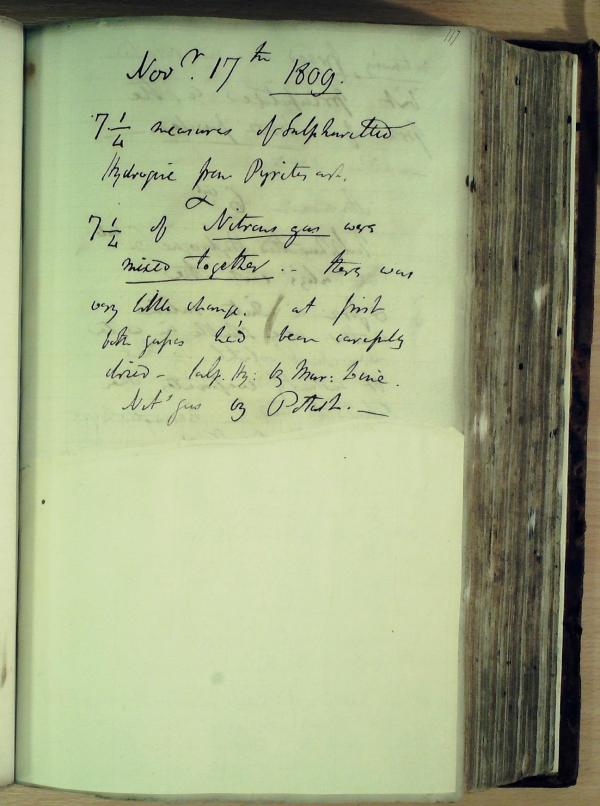 117
Novr. 17th 1809.
7 1/4 measures of Sulphuretted
Hydrogine from Pyrites &c.
7 1/4 of Nitrous gas were
mixed together. - there was
very little change. at first
both gases had been carefully
dried - Sulp. Hy: by Mur: Lime.
Nits gas by Potash. —